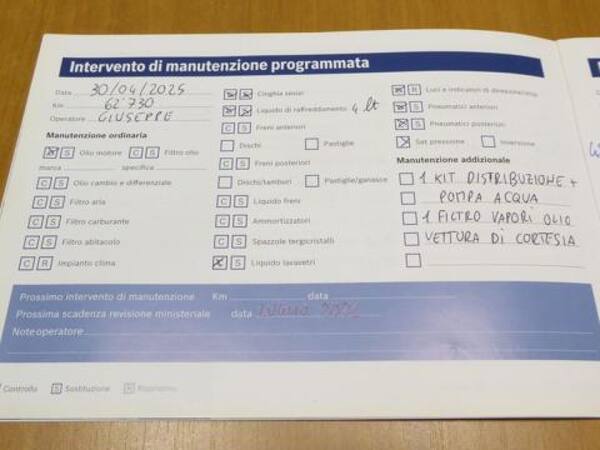 Intervento di manutenzione programmata
Data 30/04/2025
Km 62'730
Operatore GIUSEPPE
Manutenzione ordinaria
C S Olio motore C S Filtro olio
marca specifica
C S Olio cambio e differenziale
C S Filtro aria
C S Filtro carburante
C S Filtro abitacolo
C R Impianto clima
Cinghia servizi
Liquido di raffreddamento 4 lt
C S Freni anteriori
Dischi Pastiglie
C S Freni posteriori
Dischi/tamburi Pastiglie/ganasce
C S Liquido freni
C S Ammortizzatori
C S Spazzole tergicristalli
S Liquido lavavetri
R Luci e indicatori di direzione/stop
S Pneumatici anteriori
S Pneumatici posteriori
Set pressione Inversione
Manutenzione addizionale
1 KIT DISTRIBUZIONE +
POMPA ACQUA
1 FILTRO VAPORI OLIO
VETTURA DI CORTESIA
Prossimo intervento di manutenzione Km data
Prossima scadenza revisione ministeriale data
Note operatore
Controllo S Sostituzione R Ripristino